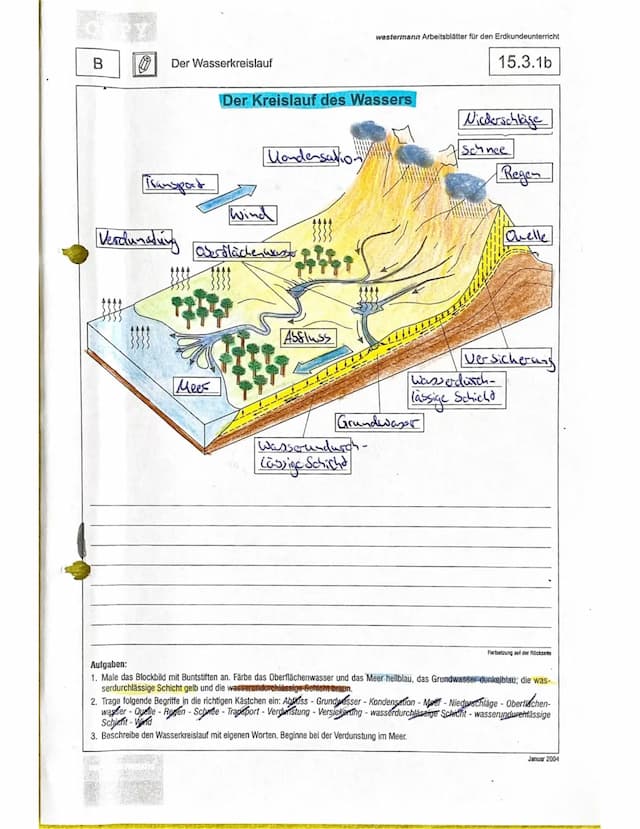 COPY
westermann Arbeitsblätter für den Erdkundeunterricht
B
Der Wasserkreislauf
15.3.1b
Der Kreislauf des Wassers
Niederschläge
Kondensation
Schnee
Transport
Regen
Wind
Verdunstung
Oberflächenwasser
Quelle
Abfluss
Versickerung
Meer
Wasserdurch-
lässige Schicht
Grundwasser
Wasserundurch-
lässige Schicht
Fortsetzung auf der Rückseite
Aufgaben:
1. Male das Blockbild mit Buntstiften an. Färbe das Oberflächenwasser und das Meer hellblau, das Grundwasser dunkelblau, die was-
serdurchlässige Schicht gelb und die wasserundurchlässige Schicht braun.
2. Trage folgende Begriffe in die richtigen Kästchen ein: Abfluss - Grundwasser - Kondensation - Meer - Niederschläge - Oberflächen-
wasser - Quelle - Regen - Schnee - Transport - Verdunstung - Versickerung - wasserdurchlässige Schicht - wasserundurchlässige
Schicht - Wind
3. Beschreibe den Wasserkreislauf mit eigenen Worten. Beginne bei der Verdunstung im Meer.
Januar 2004